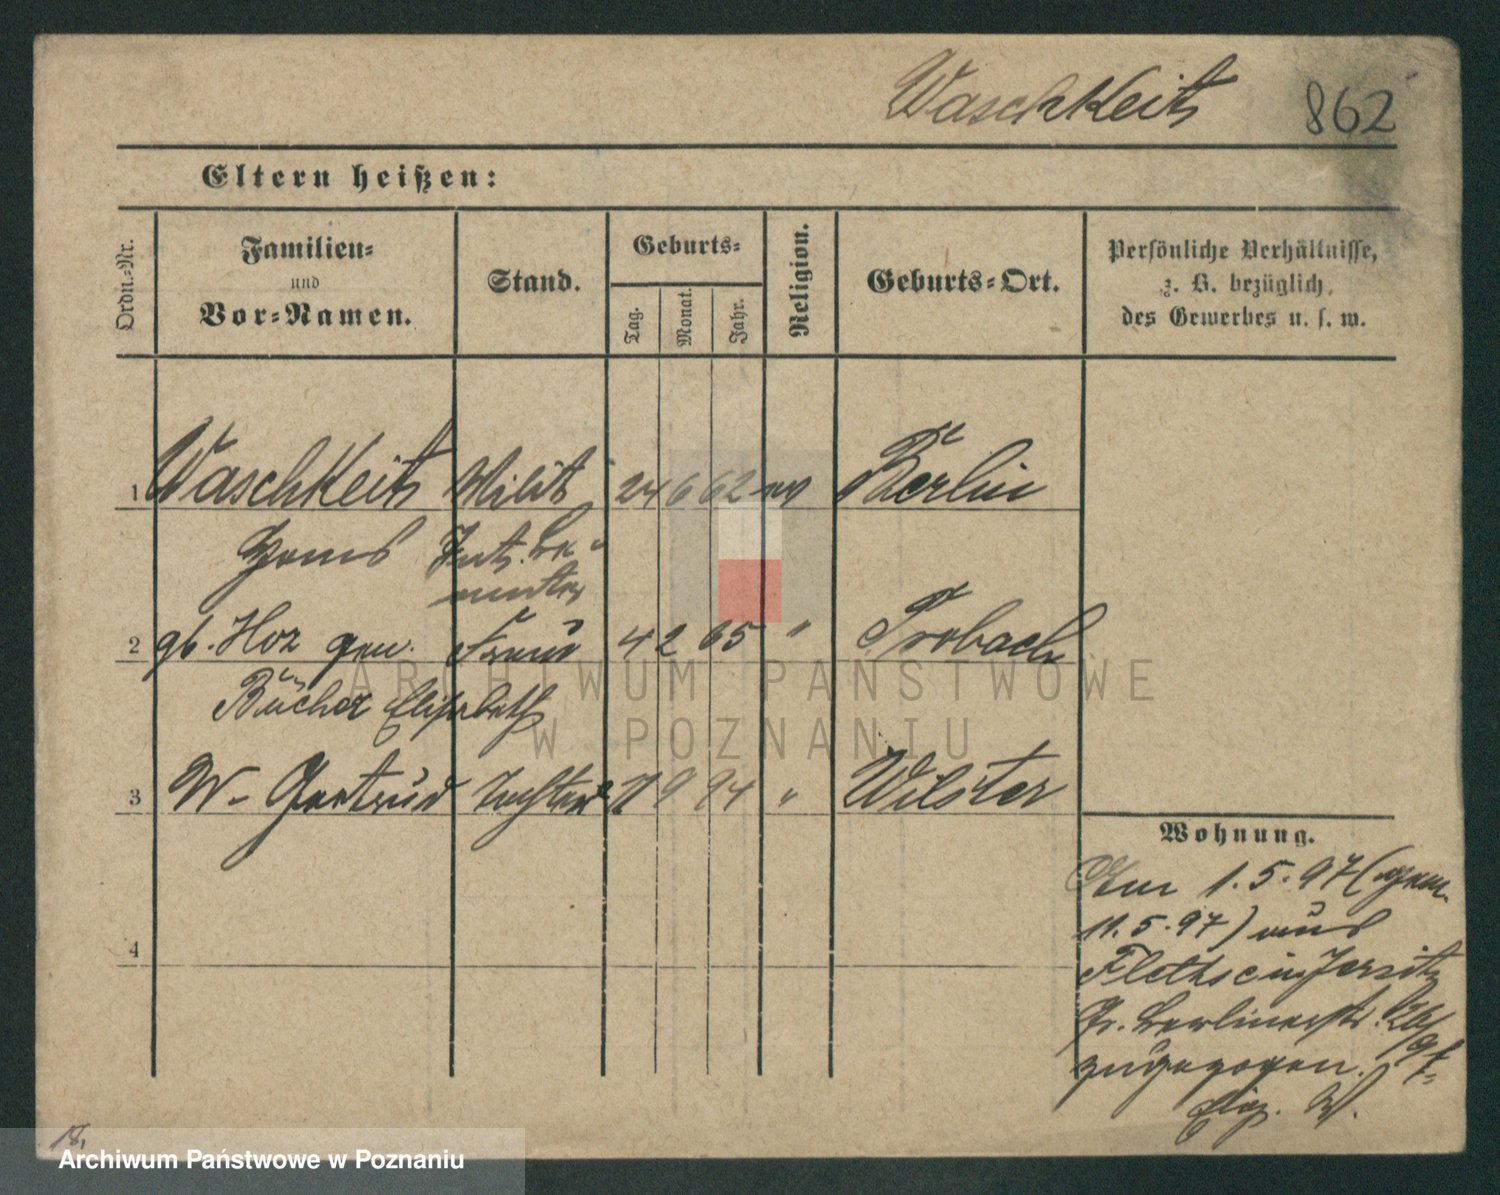 Waschkeits 862
Eltern heißen:
Ordn.-Nr.
Familien-
und
Vor-Namen.
Stand.
Geburts-
Tag.
Monat.
Jahr.
Religion.
Geburts-Ort.
Persönliche Verhältnisse,
z. B. bezüglich
des Gewerbes u. s. w.
1 Waschkeits Milit 24 6 62 ev Berlin
Hans Int. Be-
amter
2 gb. Hoz gen. Frau 4 2 65 " Trobach
Bücher Elisabeth
3 W- Gertrud Tochter 9 94 " Wilster
4
Wohnung.
Am 1.5.97 (gem.
11.5.97) aus
in Jersitz
Gr. Berlinerstr.
zugezogen.
W.
18,
ARCHIWUM PAŃSTWOWE
W POZNANIU
Archiwum Państwowe w Poznaniu